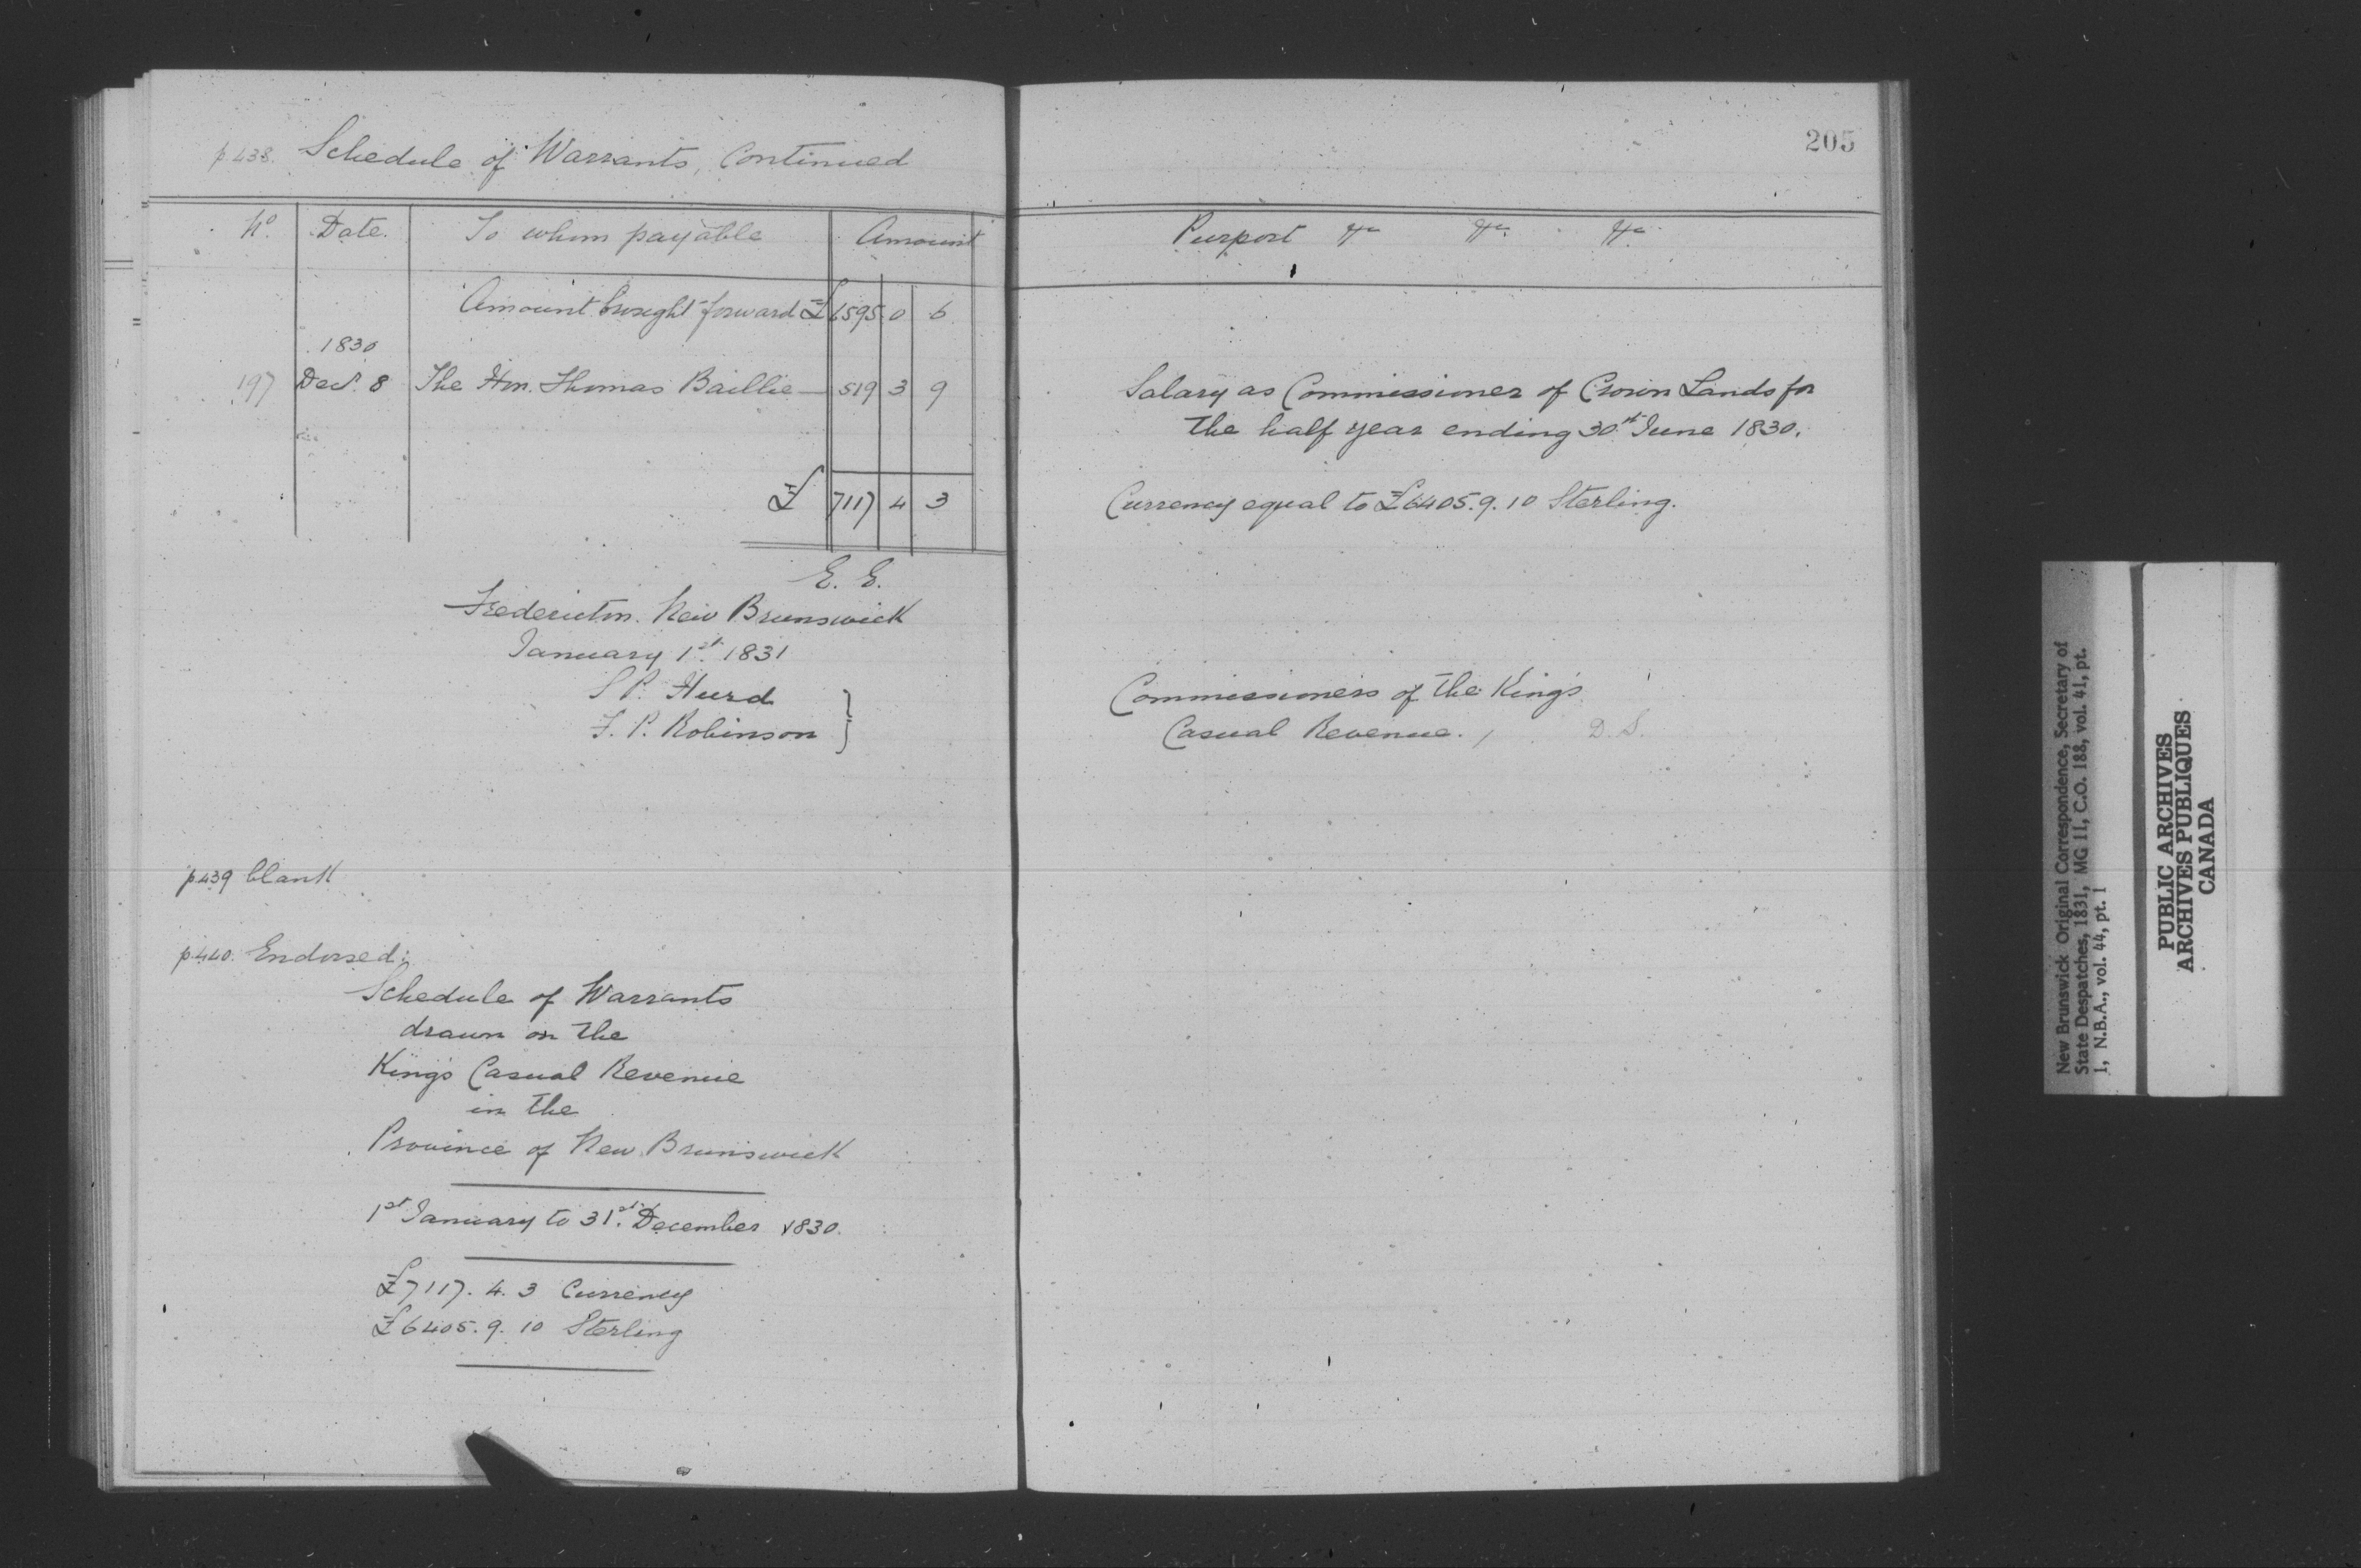 p 438. Schedule of Warrants, Continued
No. Date. To whom payable Amount
Amount brought forward £ 6595 0 6
1830
197 Decr. 8 The Hon. Thomas Baillie — 519 3 9
£ 7117 4 3
E. E.
Fredericton. New Brunswick
January 1st. 1831
S P. Hurd
F. P. Robinson }
p 439 blank
p 440. Endorsed:
Schedule of Warrants
drawn on the
King's Casual Revenue
in the
Province of New Brunswick
1st January to 31st. December 1830.
£7117. 4. 3 Currency
£6405. 9. 10 Sterling
205
Purport &c &c. &c.
Salary as Commissioner of Crown Lands for
the half year ending 30th June 1830.
Currency equal to £6405. 9. 10 Sterling.
Commissioners of the King's
Casual Revenue. D. S.
New Brunswick Original Correspondence, Secretary of
State Despatches, 1831, MG 11, C.O. 188, vol. 41, pt.
1, N.B.A., vol. 44, pt. 1
PUBLIC ARCHIVES
ARCHIVES PUBLIQUES
CANADA